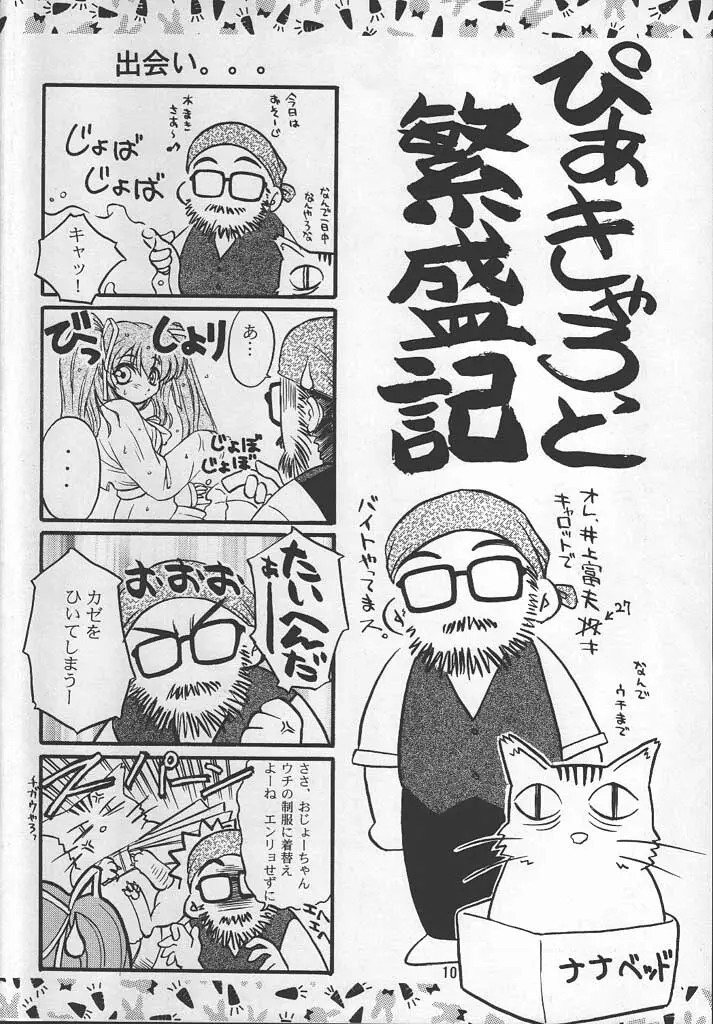 ぴあきゃろっと
繁盛記
オレ、井上富夫
キャロットで
バイトやってまス。
27
なんで
ウチまで
ナナベッド
10
出会い。。。
今日は
あそ〜じ
水まき
さあ〜♪
じょば
じょば
なんで一日中
なんやろな
キャッ！
あ…
じょり
びっ
じょぼ
じょぼ
・・・
たいへんだ
あーー
おおお
カゼを
ひいてしまうー
ささ、おじょーちゃん
ウチの制服に着替え
よーね エンリョせずに
エヘ
エヘ
チガウやろ？